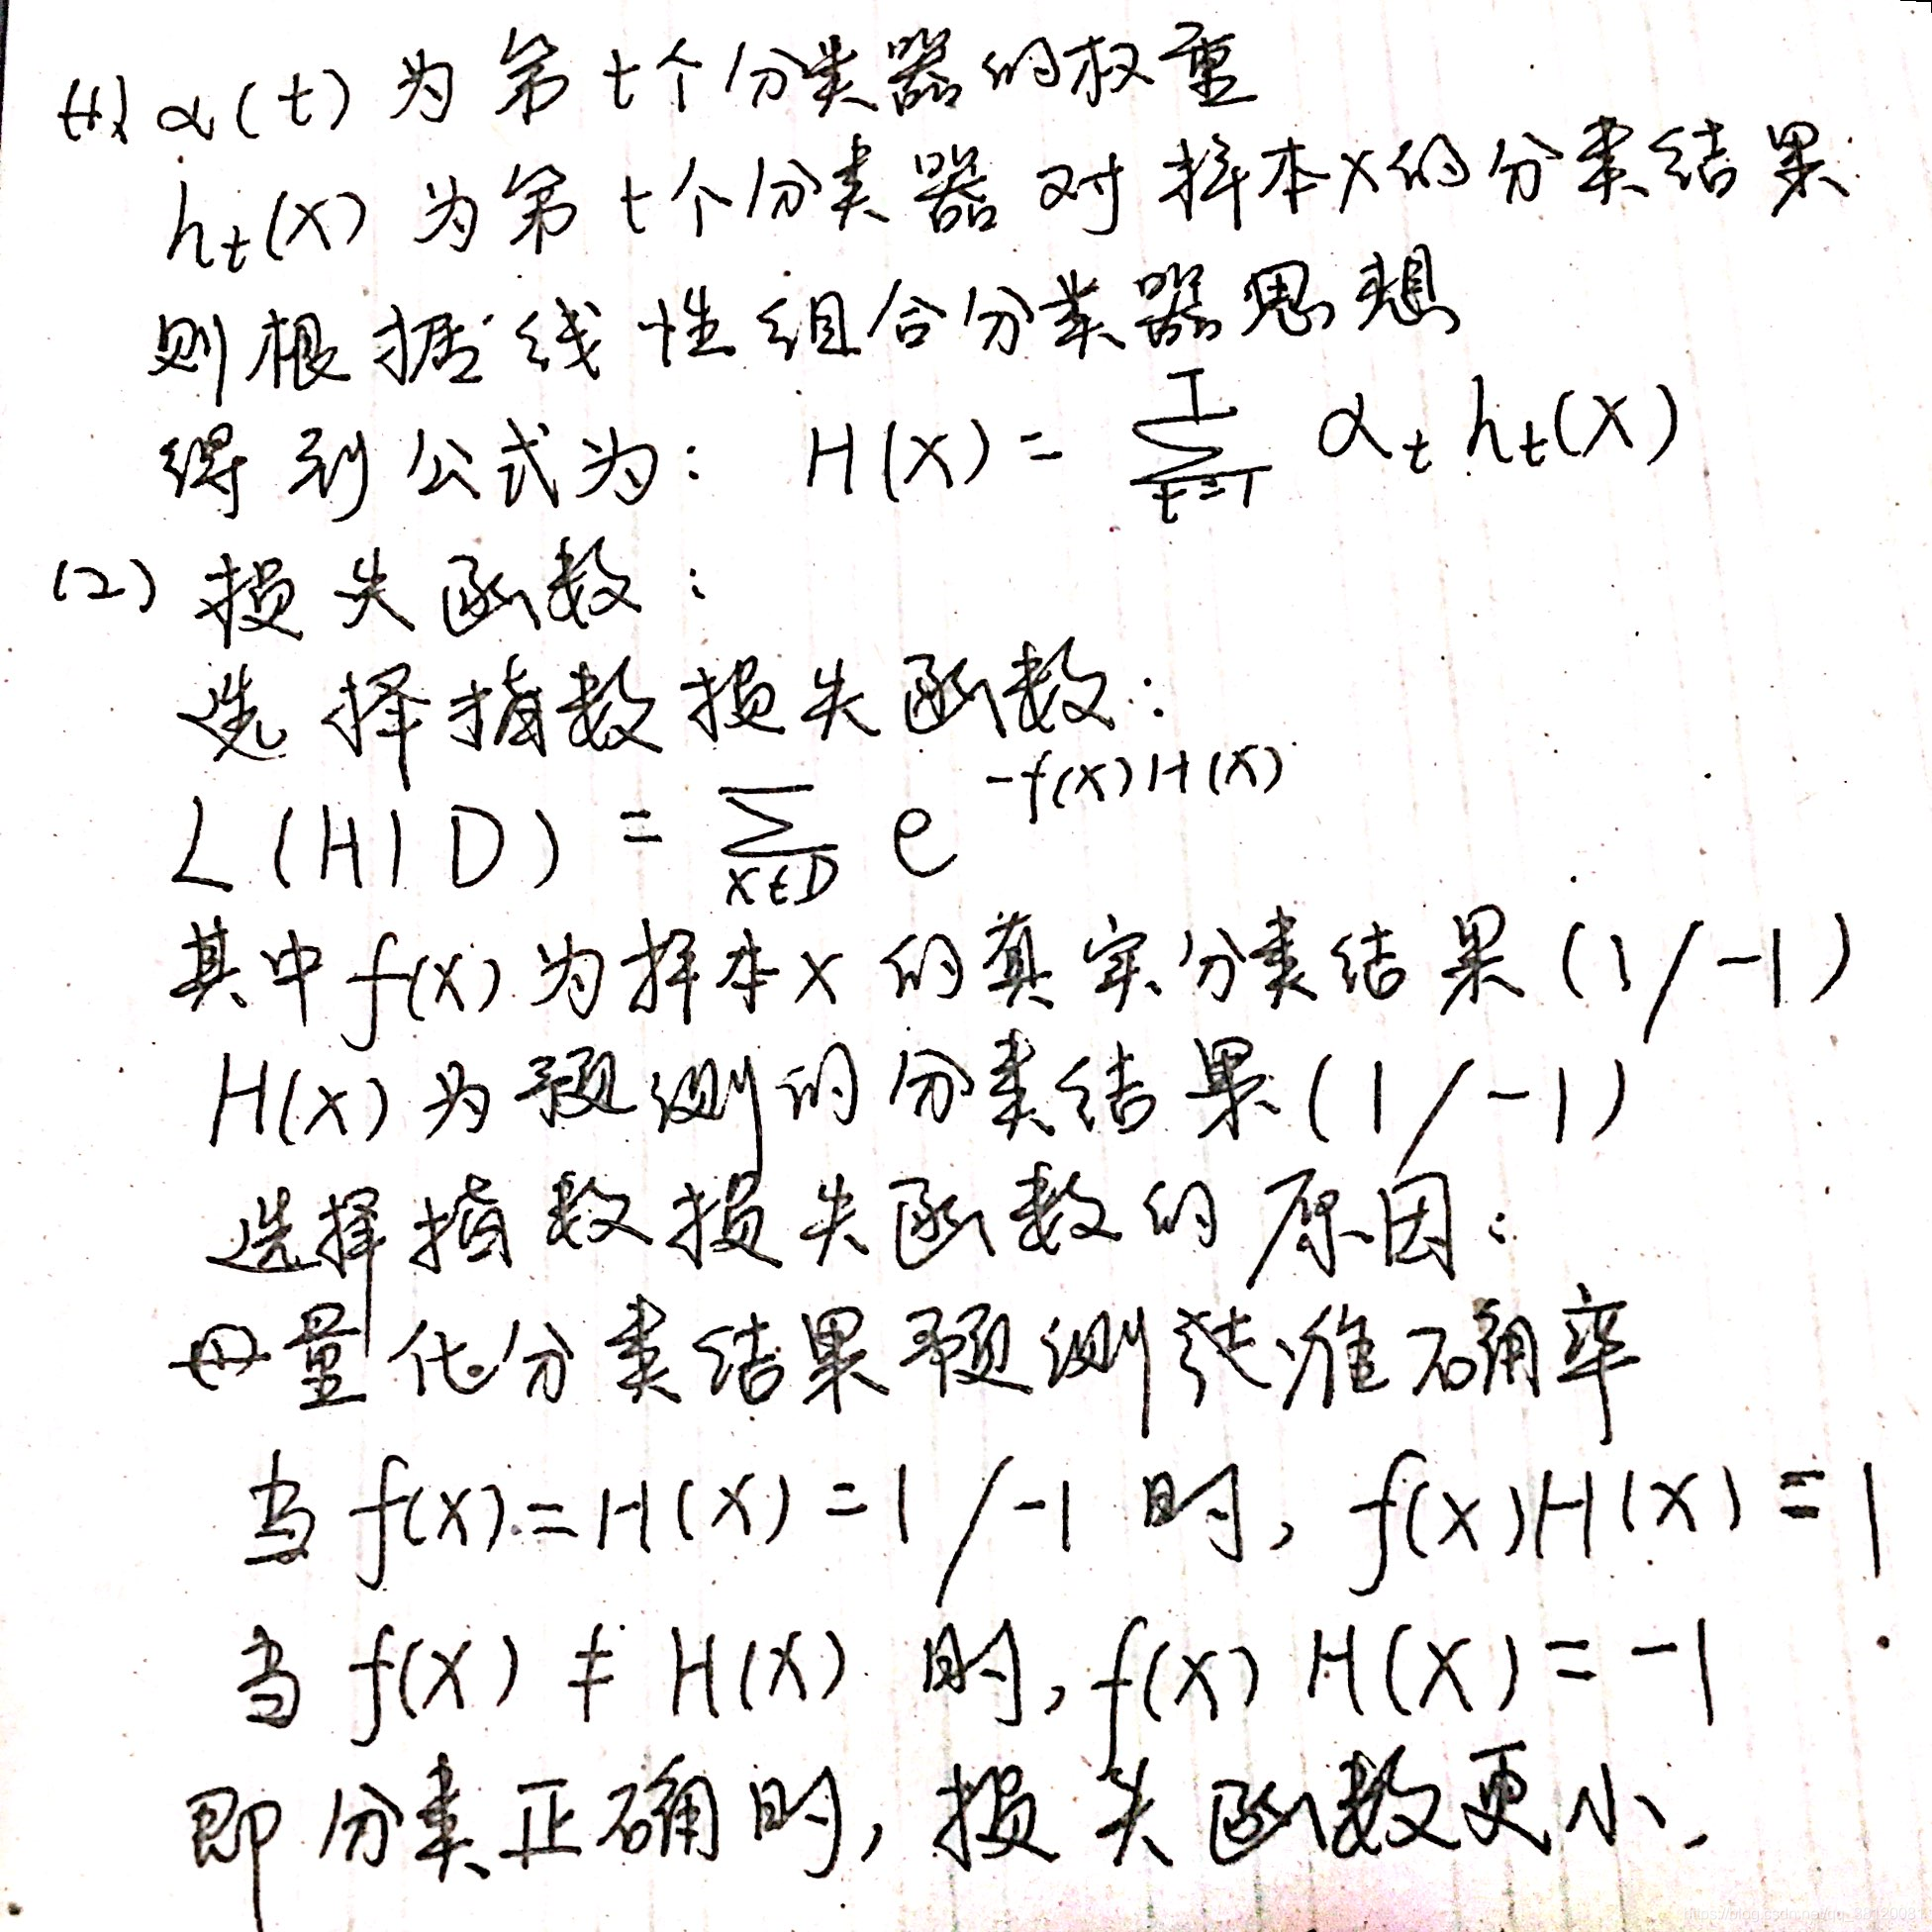 (1) α(t) 为第t个分类器的权重
h_t(x) 为第t个分类器对样本x的分类结果
则根据线性组合分类器思想
得到公式为: H(x) = ∑_{t=1}^{T} α_t h_t(x)
(2) 损失函数:
选择指数损失函数:
L(H|D) = ∑_{x∈D} e^{-f(x)H(x)}
其中f(x)为样本x的真实分类结果(1/-1)
H(x)为预测的分类结果(1/-1)
选择指数损失函数的原因:
量化分类结果预测准确率
当f(x)=H(x)=1/-1时, f(x)H(x)=1
当f(x)≠H(x)时, f(x)H(x)=-1
即分类正确时, 损失函数更小.